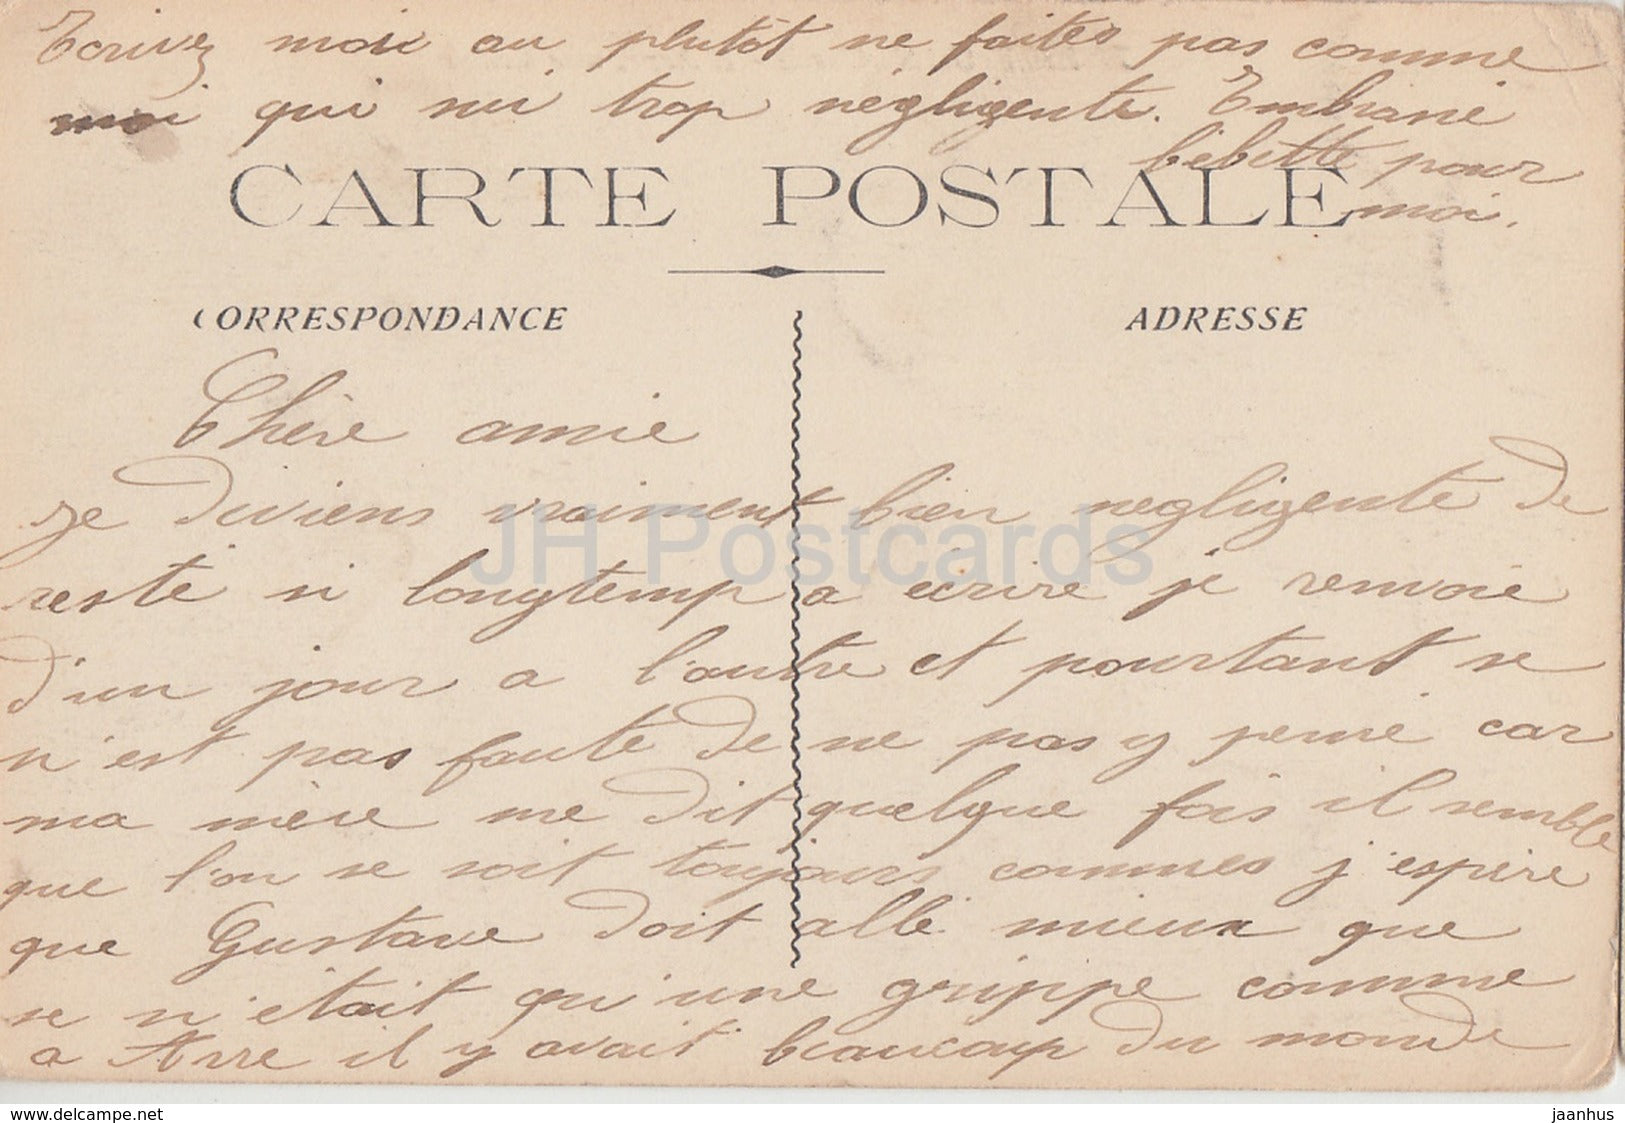 Ecrivez moi au plutôt ne faites pas comme
moi qui sui trop négligente. Embrassé
bébitte pour
moi.
CARTE POSTALE
CORRESPONDANCE
ADRESSE
Chère amie
je diviens vraiment bien negligente de
resté si longtemp a écrire je renvoie
d'un jour a l'autre et pourtant se
n'est pas faute de ne pas y pensé car
ma mère me dit quelque fois il semble
que l'on se soit toujours connues j'espère
que Gustave doit allé mieux que
se n'était qu'une grippe comme
a Arre il y avait beaucoup du monde
JH Postcards
www.delcampe.net
jaanhus